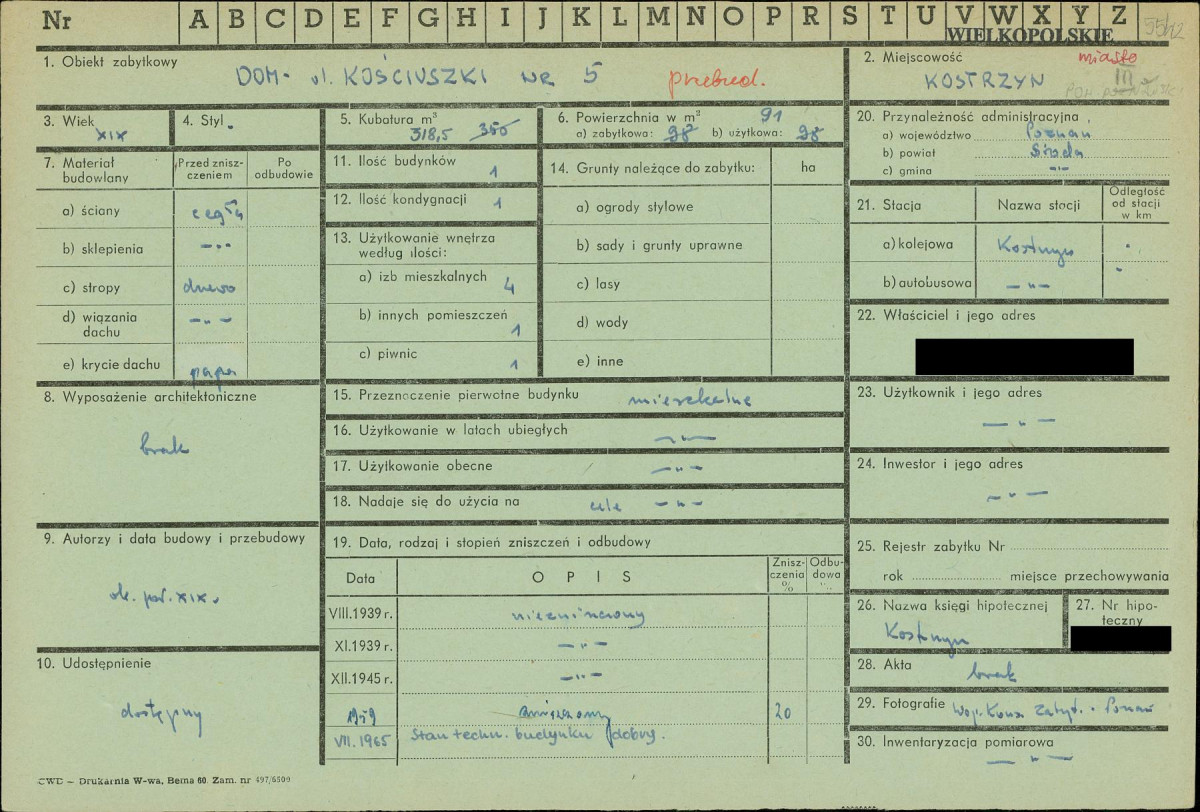 Nr A B C D E F G H I J K L M N O P R S T U V W X Y Z
WIELKOPOLSKIE
1. Obiekt zabytkowy
DOM - ul. KOŚCIUSZKI NR 5 przebud.
2. Miejscowość miasto
KOSTRZYN III
3. Wiek
XIX
4. Styl.
5. Kubatura m³
318,5 350
6. Powierzchnia w m² 91
a) zabytkowa: 98 b) użytkowa: 98
7. Materiał budowlany
Przed zniszczeniem
Po odbudowie
a) ściany cegła
b) sklepienia -"-
c) stropy drewno
d) wiązania dachu -"-
e) krycie dachu papa
8. Wyposażenie architektoniczne
brak
9. Autorzy i data budowy i przebudowy
ok. poł. XIX.
10. Udostępnienie
dostępny
11. Ilość budynków 1
12. Ilość kondygnacji 1
13. Użytkowanie wnętrza według ilości:
a) izb mieszkalnych 4
b) innych pomieszczeń 1
c) piwnic 1
14. Grunty należące do zabytku: ha
a) ogrody stylowe
b) sady i grunty uprawne
c) lasy
d) wody
e) inne
15. Przeznaczenie pierwotne budynku mieszkalne
16. Użytkowanie w latach ubiegłych -"-
17. Użytkowanie obecne -"-
18. Nadaje się do użycia na cele -"-
19. Data, rodzaj i stopień zniszczeń i odbudowy
Data O P I S Zniszczenia % Odbudowa "
VIII.1939 r. niezniszczony
XI.1939 r. -"-
XII.1945 r. -"-
1959 zniszczony 20
VII.1965 Stan techn. budynku dobry.
20. Przynależność administracyjna
a) województwo Poznań
b) powiat Środa
c) gmina -"-
21. Stacja Nazwa stacji Odległość od stacji w km
a) kolejowa Kostrzyn
b) autobusowa -"-
22. Właściciel i jego adres
23. Użytkownik i jego adres
-"-
24. Inwestor i jego adres
-"-
25. Rejestr zabytku Nr
rok miejsce przechowywania
26. Nazwa księgi hipotecznej
Kostrzyn
27. Nr hipoteczny
28. Akta brak
29. Fotografie Woj. Kons. Zabyt. - Poznań
30. Inwentaryzacja pomiarowa
-"-
CWD — Drukarnia W-wa, Bema 60. Zam. nr 497/6509